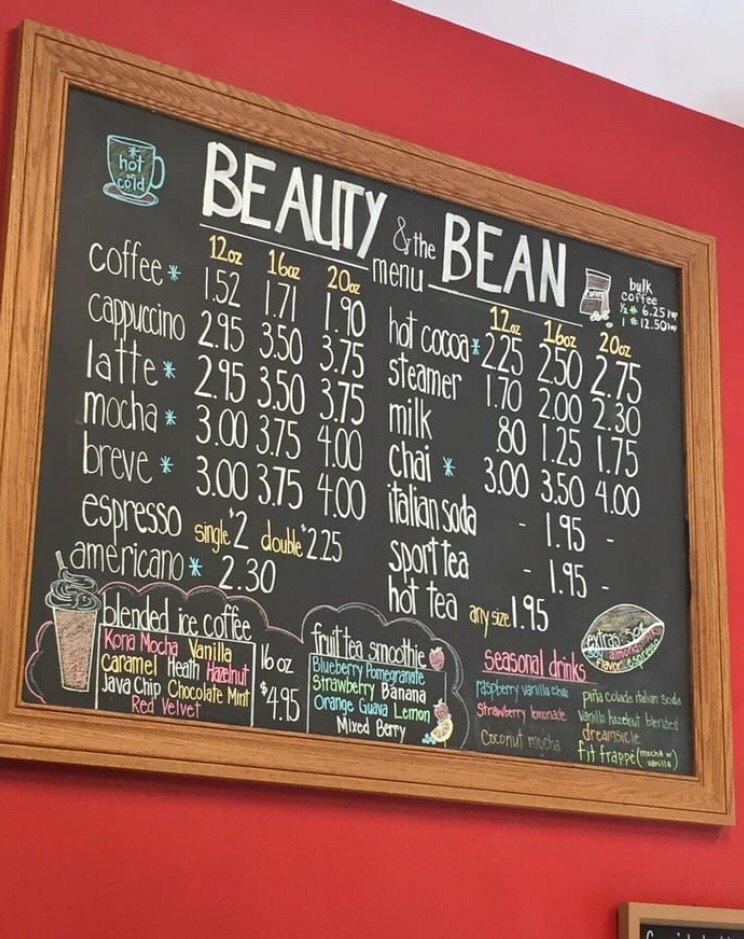 * hot or cold
BEAUTY & the BEAN
menu
bulk
coffee
1/2 # 6.25
1 # 12.50
12oz 16oz 20oz
coffee * 1.52 1.71 1.90
cappuccino 2.95 3.50 3.75
latte * 2.95 3.50 3.75
mocha * 3.00 3.75 4.00
breve * 3.00 3.75 4.00
espresso single $2 double $2.25
americano * 2.30
12oz 16oz 20oz
hot cocoa * 2.25 2.50 2.75
steamer 1.70 2.00 2.30
milk .80 1.25 1.75
chai * 3.00 3.50 4.00
italian soda - 1.95 -
sport tea - 1.95 -
hot tea any size 1.95
blended ice coffee
Kona Mocha Vanilla
Caramel Heath Hazelnut
Java Chip Chocolate Mint
Red Velvet
16 oz
$4.95
fruit tea smoothie
Blueberry Pomegranate
Strawberry Banana
Orange Guava Lemon
Mixed Berry
extras 50¢
soy almond milk
flavor espresso
seasonal drinks
raspberry vanilla chai
strawberry lemonade
coconut mocha
piña colada italian soda
vanilla hazelnut blended
dreamsicle
fit frappé (mocha or vanilla)